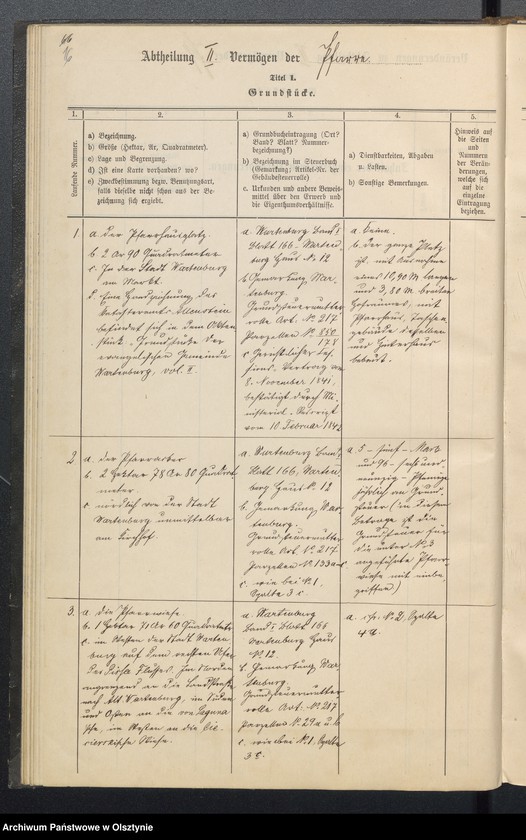 66
Abtheilung II Vermögen der Pfarre.
Titel I.
Grundstücke.
1.
Laufende Nummer.
2.
a) Bezeichnung.
b) Größe (Hektar, Ar, Quadratmeter).
c) Lage und Begrenzung.
d) Ist eine Karte vorhanden? wo?
e) Zweckbestimmung bezw. Benutzungsart,
falls dieselbe nicht schon aus der Be-
zeichnung sich ergiebt.
3.
a) Grundbucheintragung (Ort?
Band? Blatt? Nummer-
bezeichnung?)
b) Bezeichnung im Steuerbuch
(Gemarkung; Artikel-Nr. der
Gebäudesteuerrolle)
c) Urkunden und andere Beweis-
mittel über den Erwerb und
die Eigenthumsverhältnisse.
4.
a) Dienstbarkeiten, Abgaben
u. Lasten.
b) Sonstige Bemerkungen.
5.
Hinweis auf
die Seiten
und
Nummern
der Verän-
derungen,
welche sich
auf die
einzelne
Eintragung
beziehen.
1
a. Der Pfarrhausplatz
b. 2 Ar 90 Quadratmeter
c. In der Stadt Wartenburg
am Markt.
d. Eine Handzeichnung, des
Katasteramts Allenstein
befindet sich in dem Akten
stück: Grundstücke der
evangelischen Gemeinde
Wartenburg, vol. I.
a. Wartenburg Band I
Blatt 166 - Warten-
burg Haus N. 12
b. Gemarkung War-
tenburg.
Grundsteuermutter
rolle Art. N. 217
Parzellen N. 850/178
c. Gerichtlicher
Vertrag vom
8. November 1841,
bestätigt durch Mi-
nisterial-Rescript
vom 10 Februar 1842
a. Keine.
b. Der ganze Platz
ist, mit Ausnahme
eines 10,90 M. langen
und 3,80 M. breiten
Hofraumes, mit
Pfarrhaus,
gebäude desselben
und Hinterhaus
bebaut.
2
a. der Pfarracker
b. 2 Hektar 78 Ar 80 Quadrat
meter
c. nördlich von der Stadt
Wartenburg unmittelbar
am Kirchhof.
a. Wartenburg Band I
Blatt 166, Warten
berg Haus N. 12
b. Gemarkung War-
tenburg.
Grundsteuermutter
rolle Art. N. 217
Parzellen N. 133a
c. wie bei N. 1,
Spalte 3 c.
a. 5 - fünf - Mark
und 96 - sechs und
neunzig - Pfennige
jährlich an Grund-
steuer (in diesem
Betrage ist die
Grundsteuer für
die unter N. 3
angeführte Pfarr-
wiese mit einbe-
griffen)
3.
a. die Pfarrwiese
b. 1 Hektar 71 Ar 10 Quadratmeter
c. im Westen der Stadt Warten
burg auf dem rechten Ufer
des Pissa Flusses. Im Norden
angrenzend an die Landstraße
nach Alt Wartenburg, im Süden
und Osten an die von
sche, im Westen an die
Wiese.
a. Wartenburg
Band I Blatt 166
Wartenburg Haus
N. 12.
b. Gemarkung War
tenburg.
Grundsteuermutter
rolle Art. N. 217
Parzellen N. 29a u. b
c. wie bei N. 1, Spalte
3 c.
a. cfr. N. 2, Spalte
4 a.
Archiwum Państwowe w Olsztynie